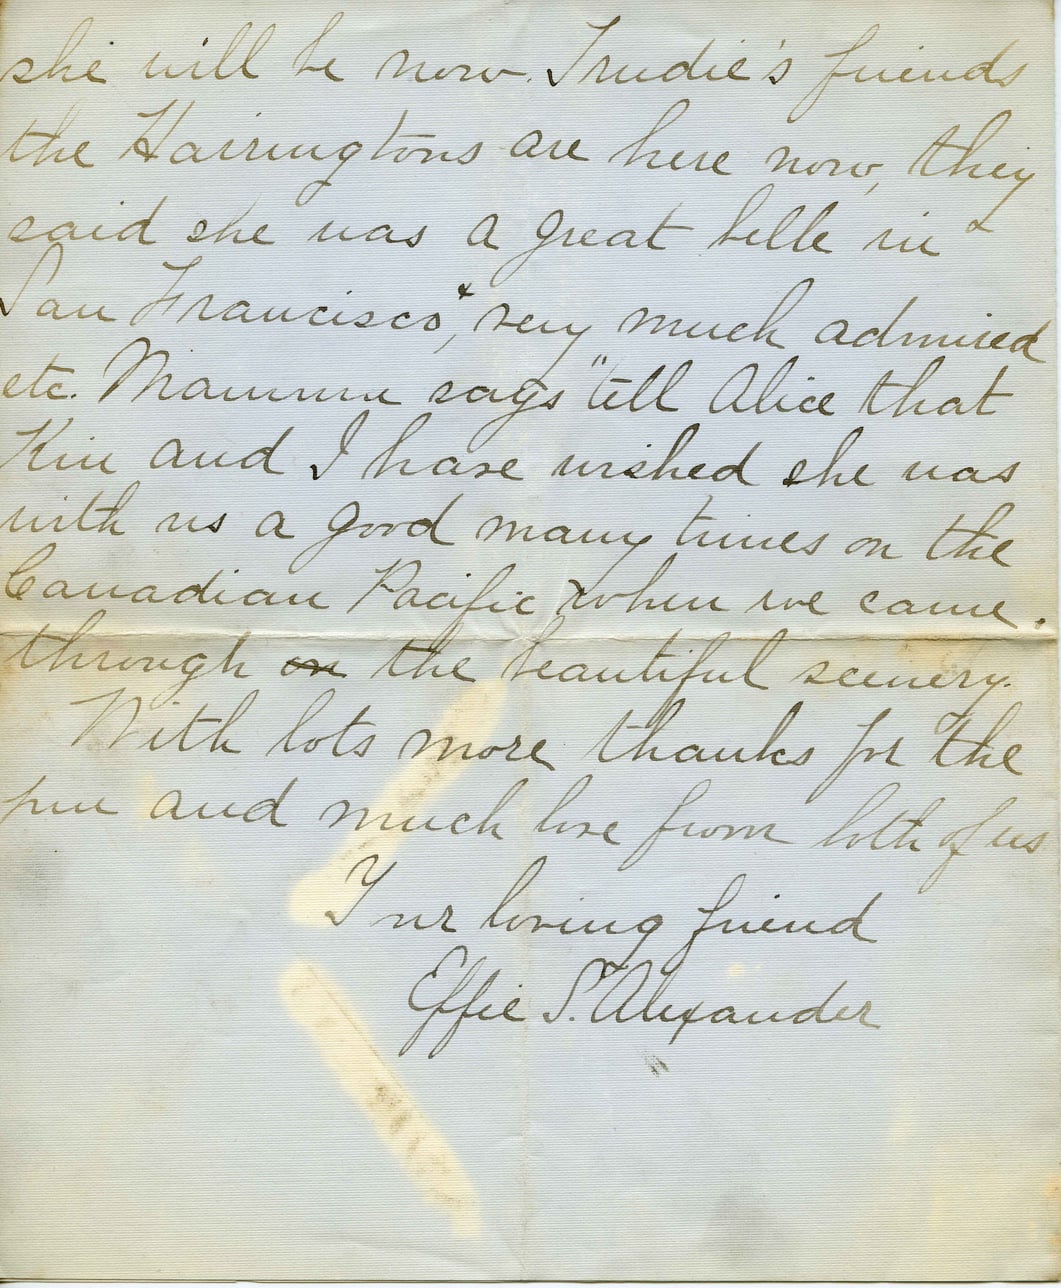 she will be now. Trudie's friends
the Harringtons are here now, they
said she was a great belle in
San Francisco, & very much admired
etc. Mamma says "tell Alice that
Kin and I have wished she was
with us a good many times on the
Canadian Pacific when we came.
through on the beautiful scenery.
With lots more thanks for the
pin and much love from both of us
Your loving friend
Effie S. Alexander